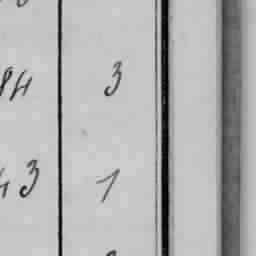 84 3
43 1